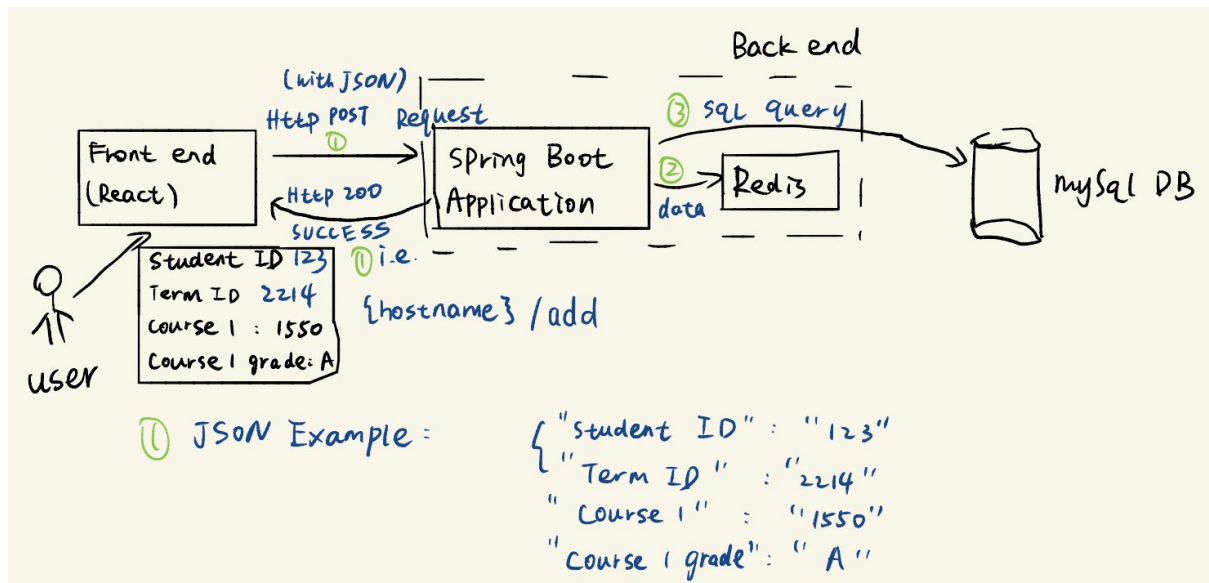 Back end
(with JSON)
Http POST Request
①
Front end
(React)
Http 200
SUCCESS
Spring Boot
Application
③ sql query
②
data
Redis
mySql DB
user
Student ID 123
Term ID 2214
Course 1 : 1550
Course 1 grade: A
① i.e.
{hostname} /add
① JSON Example :
{ "Student ID" : "123"
"Term ID" : "2214"
"Course 1" : "1550"
"Course 1 grade" : "A"